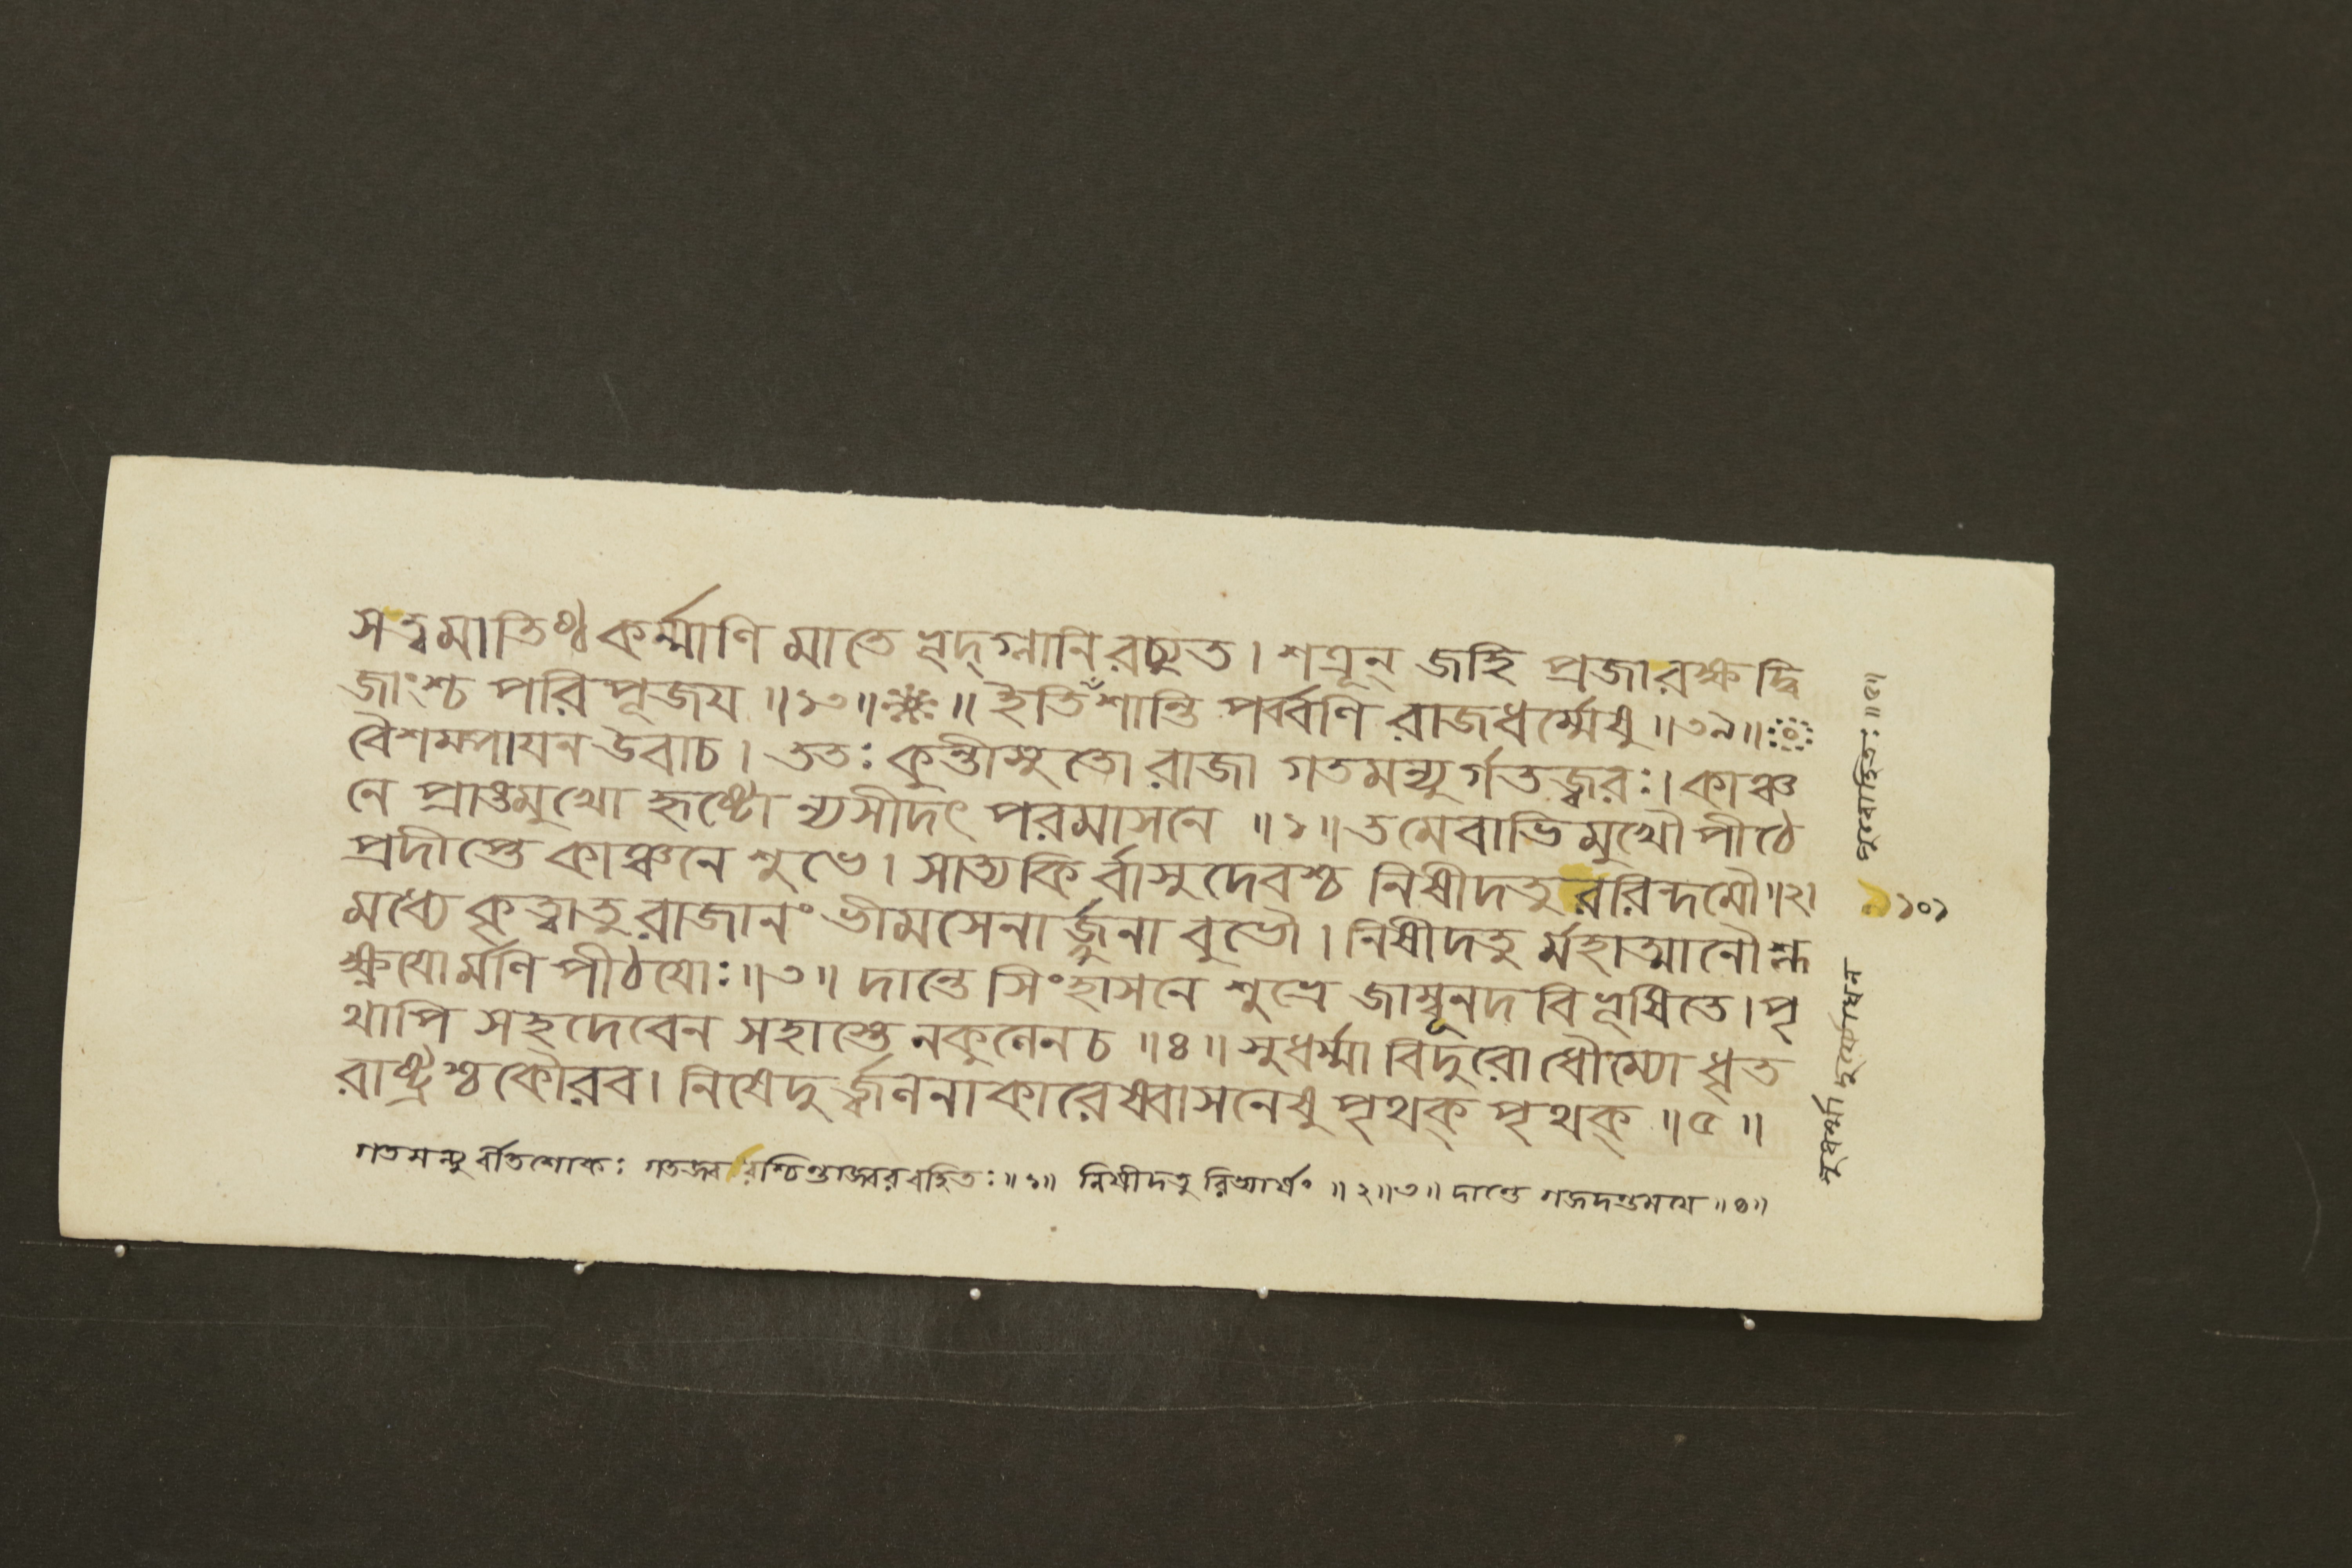 সত্বমাতিষ্ঠ কর্ম্মাণি মাতে ভূদ্গ্লানিরচ্যুত। শত্রূন্ জহি প্রজা রক্ষ দ্বি
জাংশ্চ পরিপূজয ॥১৩॥ ॥ ইতি শান্তি পর্ব্বণি রাজধর্ম্মেষু ॥৩৯॥
বৈশম্পাযন উবাচ। ততঃ কুন্তীসুতো রাজা গতমন্যুর্গতজ্বরঃ। কাঞ্চ
নে প্রাঙমুখো হৃষ্টো ন্যসীদৎ পরমাসনে ॥১॥ তমেবাভিমুখৌ পীঠে
প্রদীপ্তে কাঞ্চনে শুভে। সাত্যকির্বাসুদেবশ্চ নিষীদতুররিন্দমৌ॥২।
মধ্যে কৃত্বাতু রাজানং ভীমসেনার্জ্জুনাবুভৌ। নিষীদতুর্মহাত্মানৌ শ্ল
ক্ষ্ণযোর্মণি পীঠযোঃ॥৩॥ দান্তে সিংহাসনে শুভ্রে জাম্বূনদবিভূষিতে। পৃ
থাপি সহদেবেন সহাস্তে নকুলেনচ ॥৪॥ সুধর্ম্মা বিদুরো ধৌম্যো ধৃত
রাষ্ট্রশ্চ কৌরব। নিষেদুর্জ্বলনাকারেষ্বাসনেষু পৃথক্ পৃথক্ ॥৫॥
গতমন্যুর্বীতশোকঃ গতজ্বরশ্চিন্তাজ্বররহিতঃ॥১॥ নিষীদতুরিত্যার্ষং ॥২॥৩॥ দান্তে গজদন্তমযে ॥৪॥
সুধর্ম্মা দুর্য্যোধন পুরোহিতঃ॥৫॥
১০১